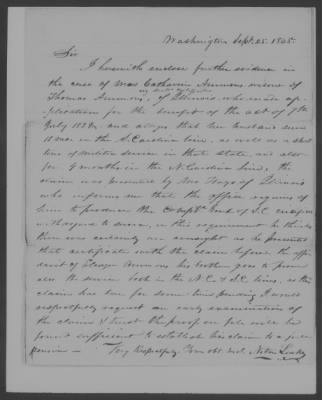 Washington Sept. 25. 1845.
Sir
I herewith enclose further evidence in
the case of Mrs Catharine Ammons widow of
Thomas Ammons, of Illinois who made ap-
plication for the benefit of the act of 7th
July 1838, and alleges that her husband served
18 mos in the S. Carolina line, as well as a short
time of militia service in that state, and also
for 9 months in the N. Carolina line. the
claim was presented by Mr Hays of Illinois
who informs me that the office requires of
him to produce the Compts of S.C. certificate
with regard to service, in this requirement he thinks
there was certainly an oversight as he presented
that certificate with the claim before the affi-
davit of his brother goes to prove
also the service both in the N.C. & S.C. lines, as the
claim has been for some time pending I would
respectfully request an early examination of
the claim & trust the proof on file will be
found sufficient to establish her claim to a
pension — Very Respectfully Your obt svt.